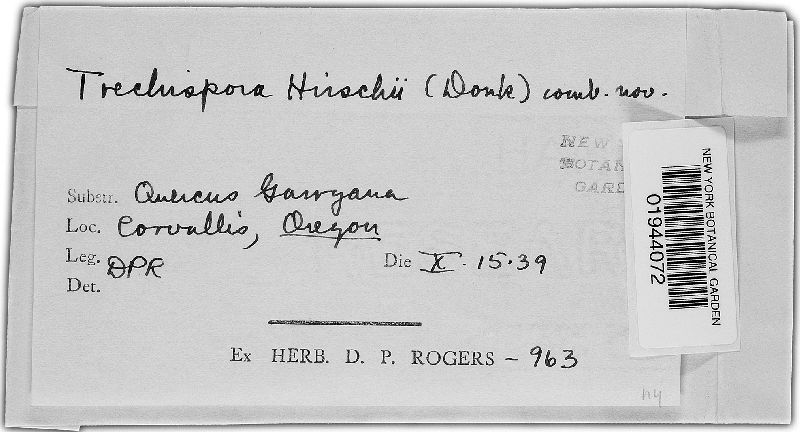 Trechispora Hirschii (Donk) comb. nov.
NEW
BOTAN
GARD
Substr. Quercus Garryana
Loc. Corvallis, Oregon
Leg. DPR
Die X. 15.39
Det.
Ex HERB. D. P. ROGERS – 963
NEW YORK BOTANICAL GARDEN
01944072
ny